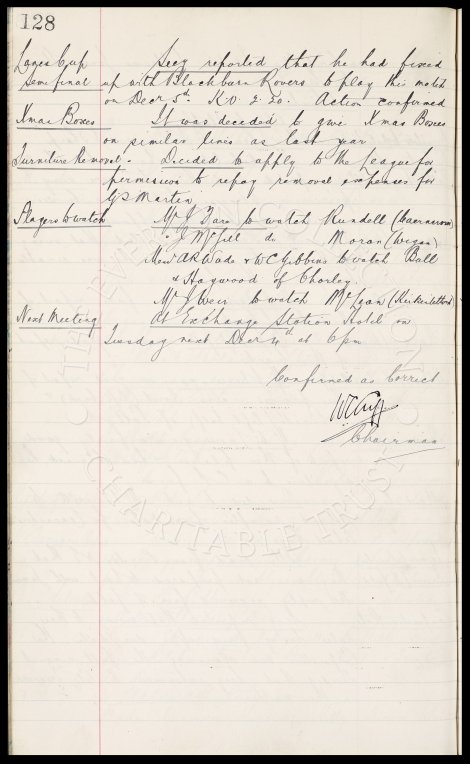 128
Lancs Cup Secy reported that he had fixed
Semi final up with Blackburn Rovers to play this match
on Decr 5th. K.O. 2.20. Action confirmed
Xmas Boxes It was decided to give Xmas Boxes
on similar lines as last year
Furniture Removal. Decided to apply to the League for
permission to repay removal expenses for
G S Martin
Players to watch Mr J to watch Rundell (Caernarvon)
" J McGill do Moran (Wigan)
Messrs A R Wade & W C Gibbins to watch Ball
& Haywood of Chorley
Mr J Weir to watch McLean
Next Meeting At Exchange Station Hotel on
Tuesday next Decr 4th at 6pm
Confirmed as Correct
W C Cuff
Chairman
THE EVERTON
CHARITABLE TRUST